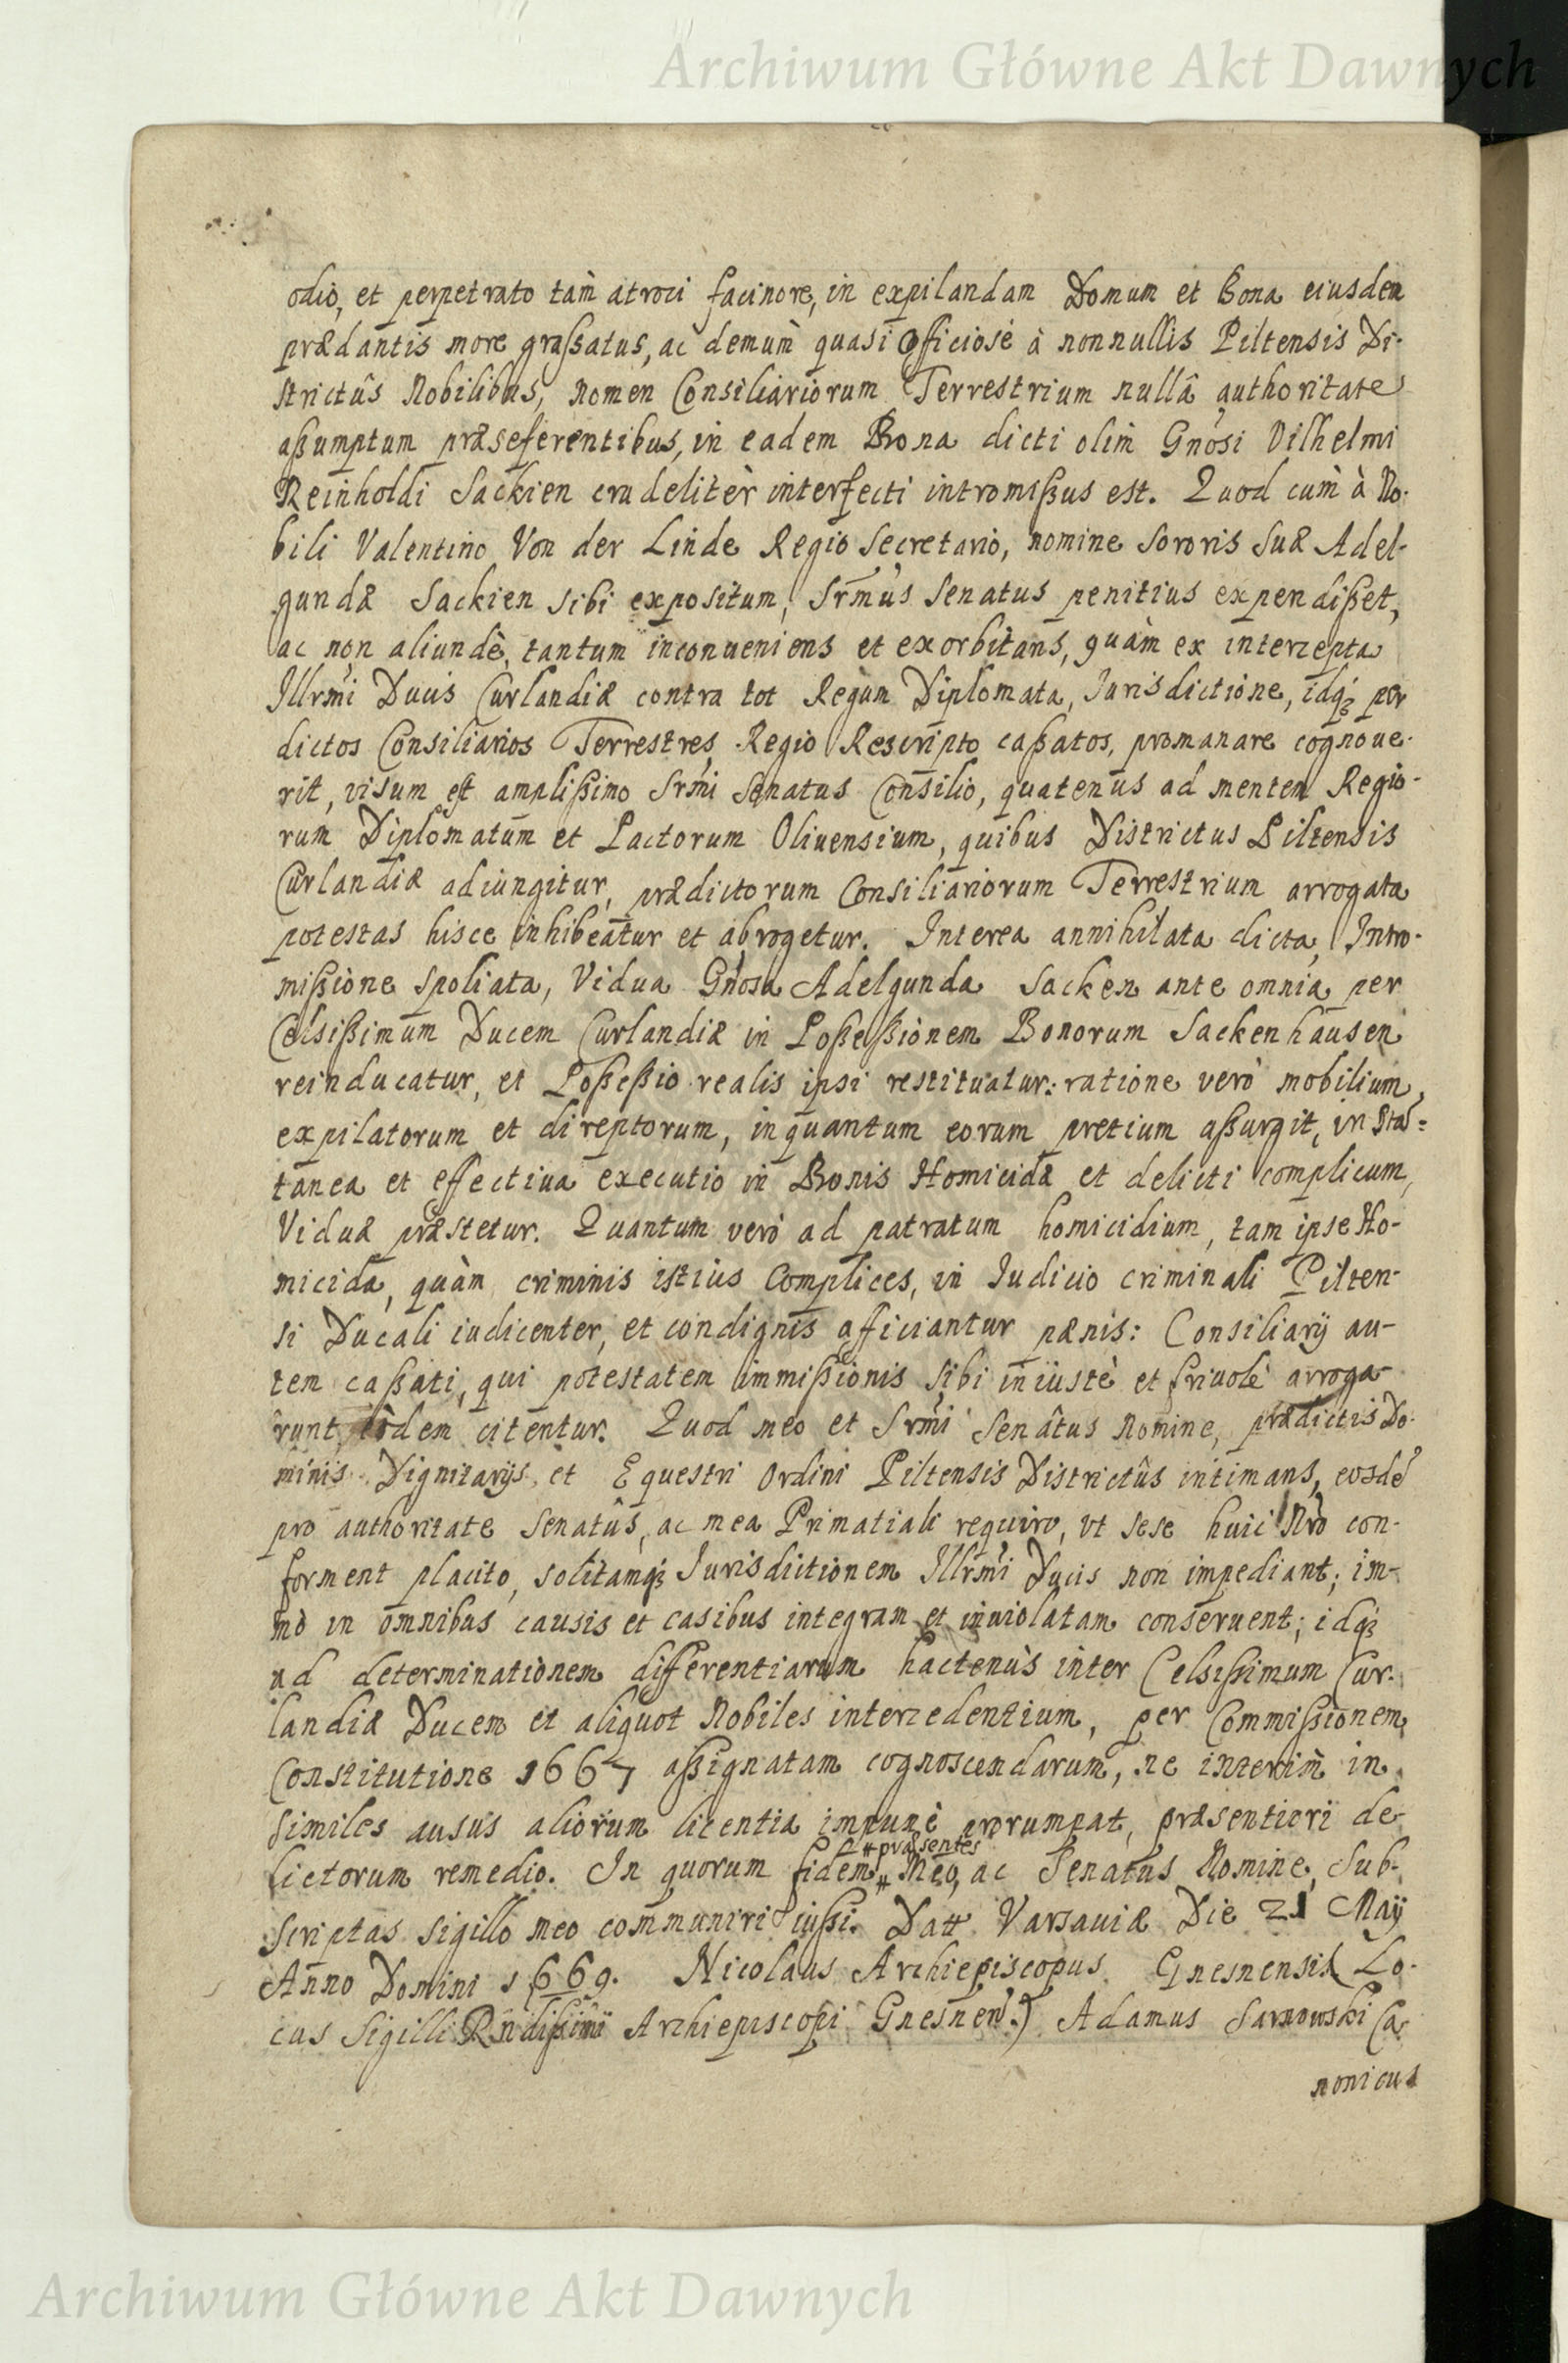 Archiwum Główne Akt Dawnych
odiò, et perpetrato tam̀ atroci facinore, in expilandam Domum et Bona eiusdem
prædantis more graßatus, ac demum̀ quasi officiosè à nonnullis Piltensis Di-
strictûs Nobilibus, nomen Consiliariorum Terrestrium nullâ authoritate
aßumptum præseferentibus, in eadem Bona dicti olim̀ Gnosi Vilhelmi
Reinholdi Sackien crudelitèr interfecti intromißus est. Quod cum̀ à No-
bili Valentino Von der Linde Regio Secretario, nomine Sororis Suæ Adel-
gundæ Sackien sibi expositum, Srm̄us Senatus penitius expendißet,
ac non aliundè, tantum inconueniens et exorbitans, quàm ex intercepta
Illrmi Ducis Curlandiæ contra tot Regum Diplomata, Jurisdictione, idq; per
dictos Consiliarios Terrestres, Regio Rescripto caßatos, promanare cognoue-
rit, visum est amplißimo Srmi Senatus Consilio, quatenus ad mentem Regio-
rum Diplomatum et Pactorum Oliuensium, quibus Districtus Piltensis
Curlandiæ adiungitur, prædictorum Consiliariorum Terrestrium arrogata
potestas hisce inhibeatur et abrogetur. Interea annihilata dicta, Intro-
mißione spoliata, Vidua Gnosa Adelgunda Sacken ante omnia per
Celsißimum Ducem Curlandiæ in Poßeßionem Bonorum Sackenhausen
reinducatur, et Poßeßio realis ipsi restituatur: ratione verò mobilium,
expilatorum et direptorum, inquantum eorum pretium aßurgit, in Stan̄=
tanea et effectiua executio in Bonis Homicidæ et delicti complicum,
Viduæ præstetur. Quantum verò ad patratum homicidium, tam ipse Ho-
micida, quàm criminis istius Complices, in Iudicio criminali Pilten-
si Ducali iudicenter, et condignis afficiantur pænis: Consiliarij au-
tem caßati, qui potestatem immißionis sibi iniustè et friuolè arroga-
runt, itìdem citentur. Quod meo et Srmi Senâtus Nomine, prædictis Do-
minis Dignitarijs et Equestri Ordini Piltensis Districtûs intimans, eosdē
pro authoritate Senatûs, ac mea Primatiali requiro, vt sese huic Nrò con-
forment placito, solitamq; Jurisdictionem Illrmi Ducis non impediant; im-
mò in omnibus causis et casibus integram et inuiolatam conseruent; idq;
ad determinationem differentiarum hactenùs inter Celsißimum Cur-
landiæ Ducem et aliquot Nobiles intercedentium, per Commißionem
Constitutione 1667 aßignatam cognoscendarum, ne interim̀ in
similes ausus aliorum licentia impunè prorumpat, præsentiori de-
# præsentes
lictorum remedio. In quorum fidem # Meo, ac Senatus Nomine, Sub-
scriptas sigillo meo communiri iußi. Datt Varsauiæ Die 21 Maij
Anno Domini 1669. Nicolaus Archiepiscopus Gnesnensis (Lo-
cus Sigilli Rndißimi Archiepiscopi Gnesnen.) Adamus Sarnowski Ca-
nonicus
Archiwum Główne Akt Dawnych